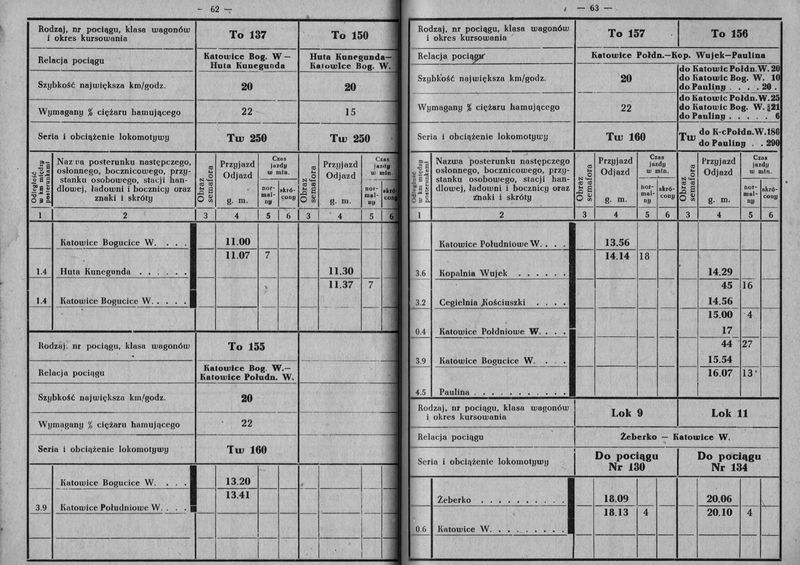 — 62 —
Rodzaj, nr pociągu, klasa wagonów
i okres kursowania
To 137
To 150
Relacja pociągu
Katowice Bog. W —
Huta Kunegunda
Huta Kunegunda—
Katowice Bog. W.
Szybkość największa km/godz.
20
20
Wymagany % ciężaru hamującego
22
15
Seria i obciążenie lokomotywy
Tw 250
Tw 250
Odległość
w km między
posterunkami
Nazwa posterunku następczego,
osłonnego, bocznicowego, przy-
stanku osobowego, stacji han-
dlowej, ładowni i bocznicy oraz
znaki i skróty
Obraz
semafora
Przyjazd
Odjazd
g. m.
Czas
jazdy
w min.
nor-
mal-
ny
skró-
cony
Obraz
semafora
Przyjazd
Odjazd
g. m.
Czas
jazdy
w min.
nor-
mal-
ny
skró-
cony
1 2 3 4 5 6 3 4 5 6
Katowice Bogucice W. . . . 11.00
11.07 7
1.4 Huta Kunegunda . . . . . . 11.30
11.37 7
1.4 Katowice Bogucice W. . . . .
Rodzaj, nr pociągu, klasa wagonów
i okres kursowania
To 155
Relacja pociągu
Katowice Bog. W.—
Katowice Połudn. W.
Szybkość największa km/godz.
20
Wymagany % ciężaru hamującego
22
Seria i obciążenie lokomotywy
Tw 160
Katowice Bogucice W. . . . 13.20
13.41
3.9 Katowice Południowe W. . . .
— 63 —
Rodzaj, nr pociągu, klasa wagonów
i okres kursowania
To 157
To 156
Relacja pociągu
Katowice Połdn.—Kop. Wujek—Paulina
Szybkość największa km/godz.
20
do Katowic Połdn.W. 20
do Katowic Bog. W. 10
do Pauliny . . . . 20
Wymagany % ciężaru hamującego
22
do Katowic Połdn.W.25
do Katowic Bog. W. 21
do Pauliny . . . . . 6
Seria i obciążenie lokomotywy
Tw 160
Tw
do K-cPołdn.W.186
do Pauliny . . 290
Odległość
w km między
posterunkami
Nazwa posterunku następczego
osłonnego, bocznicowego, przy-
stanku osobowego, stacji han-
dlowej, ładowni i bocznicy oraz
znaki i skróty
Obraz
semafora
Przyjazd
Odjazd
g. m.
Czas
jazdy
w min.
nor-
mal-
ny
skró-
cony
Obraz
semafora
Przyjazd
Odjazd
g. m.
Czas
jazdy
w min.
nor-
mal-
ny
skró-
cony
1 2 3 4 5 6 3 4 5 6
Katowice Południowe W. . . . 13.56
14.14 18
3.6 Kopalnia Wujek . . . . . . 14.29
45 16
3.2 Cegielnia Kościuszki . . . . 14.56
15.00 4
0.4 Katowice Połdniowe W. . . . 17
44 27
3.9 Katowice Bogucice W. . . . 15.54
16.07 13
4.5 Paulina . . . . . . . . . . .
Rodzaj, nr pociągu, klasa wagonów
i okres kursowania
Lok 9
Lok 11
Relacja pociągu
Żeberko — Katowice W.
Seria i obciążenie lokomotywy
Do pociągu
Nr 130
Do pociągu
Nr 134
Żeberko . . . . . . . . . . 18.09 20.06
18.13 4 20.10 4
0.6 Katowice W. . . . . . . . .